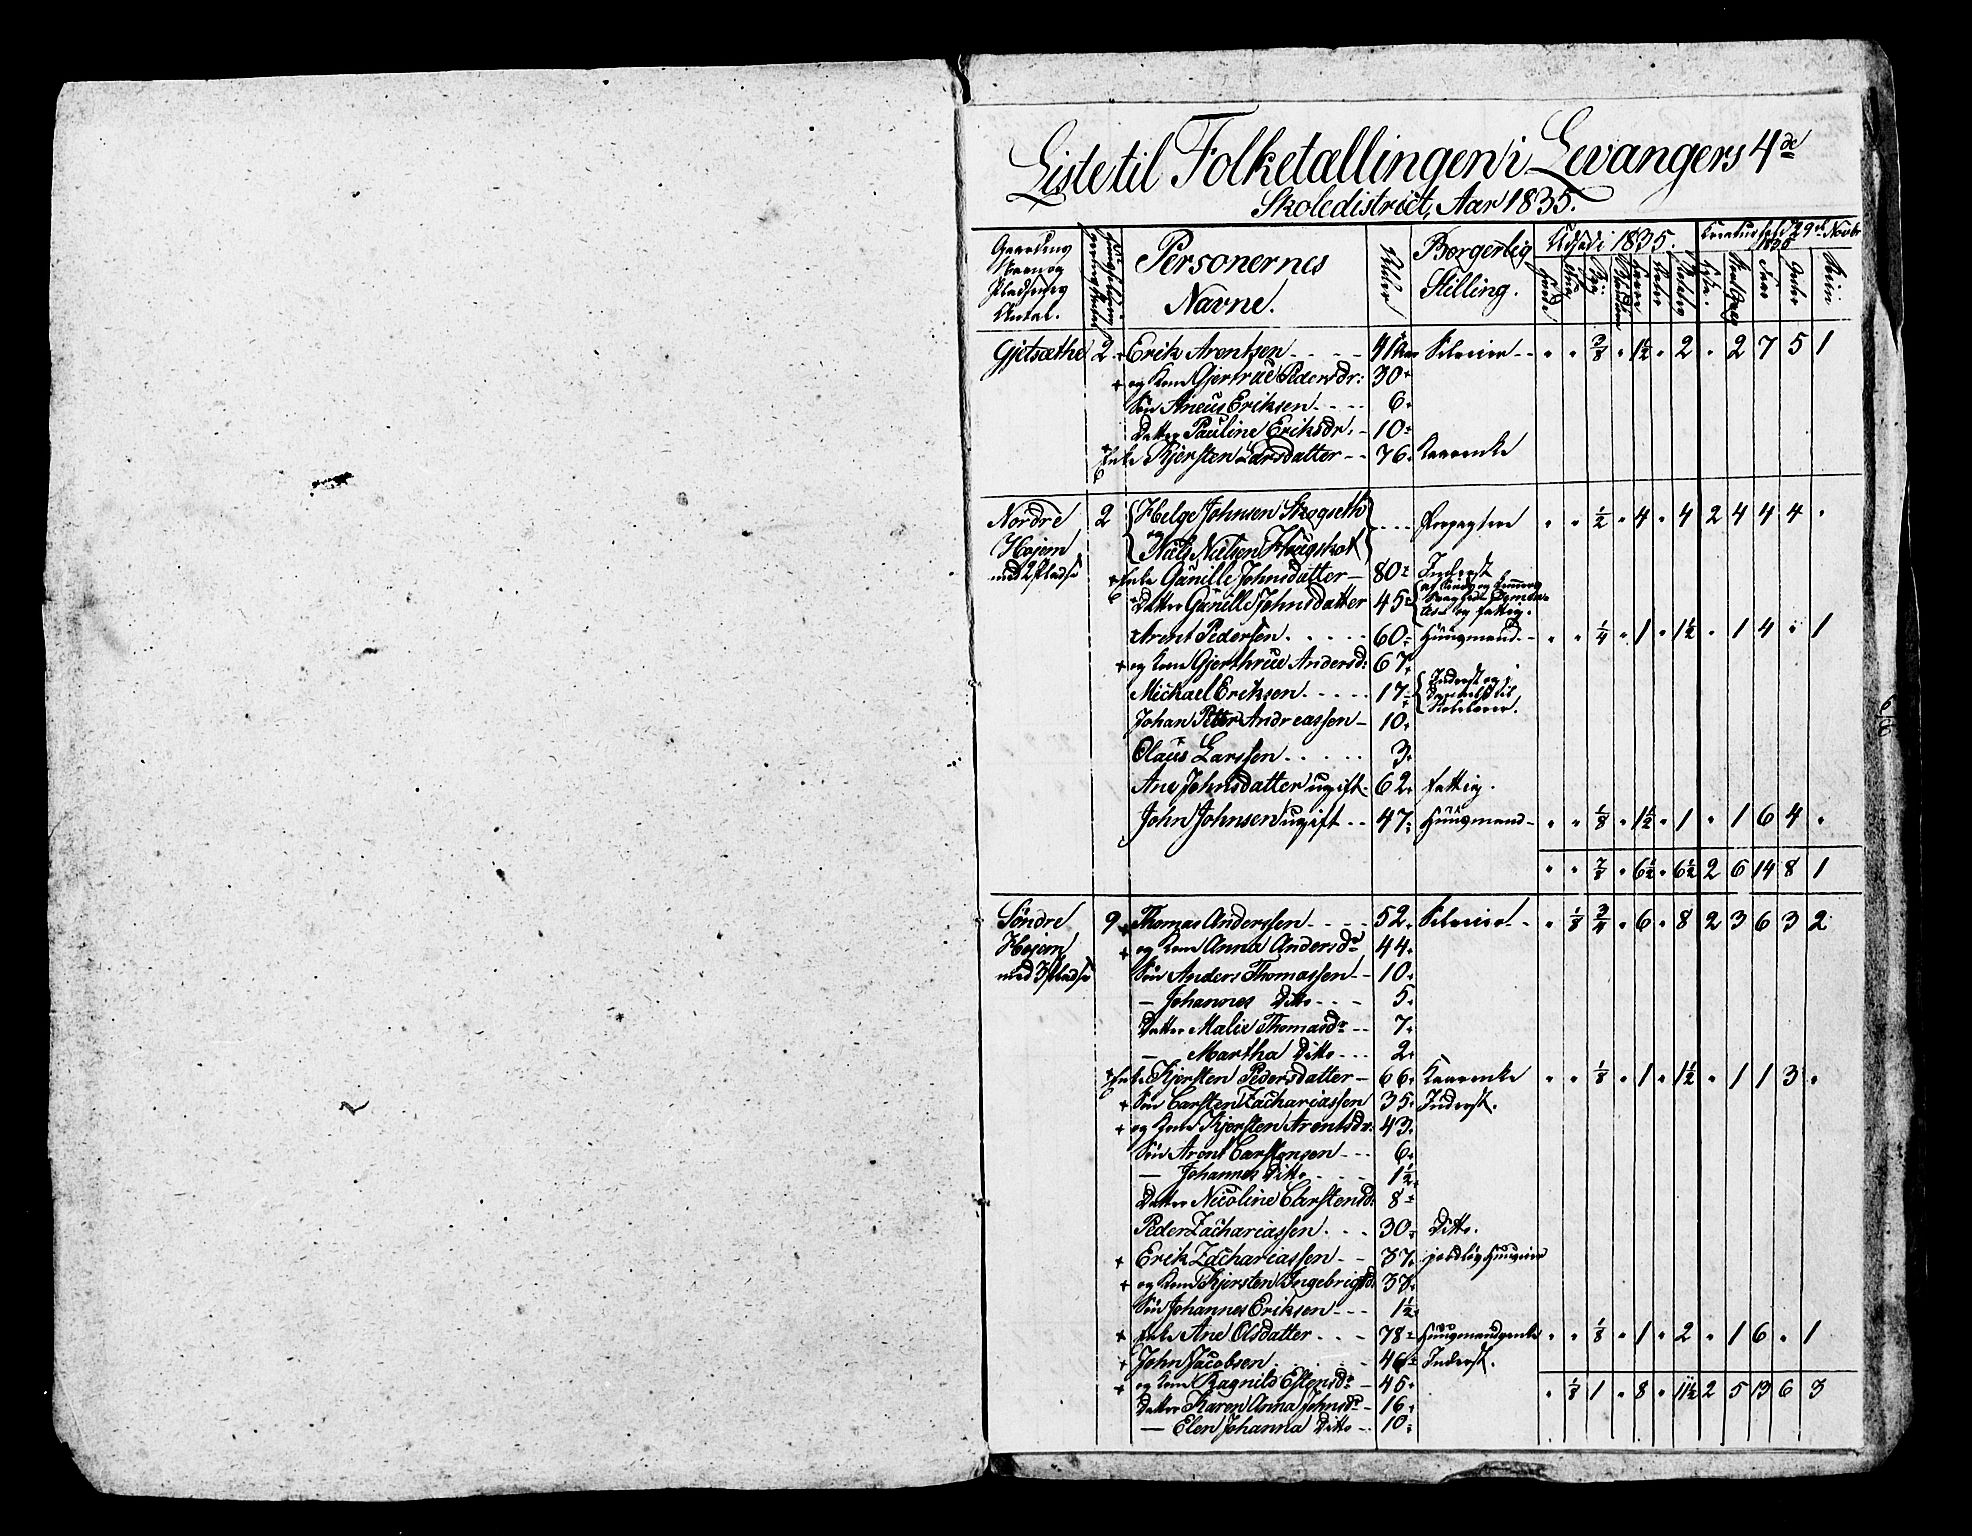 Liste til Folketællingen i Levangers 4de
Skoledistrict, Aar 1835.
Gaardens Navn og Pladsenes Antal. Personernes Navne. Alder Borgerlig Stilling. Udsæd i 1835. Kreatur hold 29de Novbr 1835
Heste Faar Sviin
Gjetsæthe 2 Erik Arentsen 41 Aar Selveier " " 3/8 " 1½ " 2 " 2 7 5 1
og Kone Gjertrue Pedersdr: 30
Søn Aneus Eriksen 6
Datter Pauline Eriksdr: 10
Enke Kjersten Larsdatter 76 Kaarenke
Nordre Højem med 2 Pladse 2 Helge Johnsen Skogseth Forpagtere " " ½ " 4 " 4 2 4 4 4 "
og Niels Nielsen
Enke Gunille Johnsdatter 80 Inderst
Datter Gunille Johnsdatter 45 og fattig.
Arent Pedersen 60 Huusmand " " ¼ " 1 " 1½ " 1 4 " 1
og Kone Gjerthrue Andersd: 67
Mickael Eriksen 17 Inderst og i til Selveier.
Johan Petter Andreassen 10
Olaus Larssen 3
Ane Johnsdatter ugift 62 fattig.
John Johnsen ugift 47 Huusmand " " 1/8 " 1½ " 1 " 1 6 4 "
" " 7/8 " 6½ " 6½ 2 6 14 8 1
Søndre Højem med 3 Pladse 9 Thomas Anderssen 52 Selveier " 1/8 3/4 " 6 " 8 2 3 6 3 2
og Kone Anna Andersdr 44
Søn Anders Thomassen 10
— Johannes Ditto 5
Datter Malie Thomasdr 7
— Martha Ditto 2
Enke Kjersten Pedersdatter 66 Kaarenke " " 1/8 " 1 " 1½ " 1 1 3 "
Søn Carsten Zachariassen 35 Inderst.
og Kone Kjersten Arentsdr: 43
Søn Arent Carstensen 6
— Johannes Ditto 1½
Datter Nicoline Carstensd: 8
Peder Zachariassen 30 Ditto.
Erik Zachariassen 37 jordløs Huusmand
og Kone Kjersten Ingebrigtsd: 38
Søn Johannes Eriksen 1½
Enke Ane Olsdatter 78 Huusmandsenke " " 1/8 " 1 " 2 " 1 6 " 1
John Jacobsen 46 Inderst.
og Kone Ragnild Estensdr 45 " 1/8 1 " 8 " 11½ 2 5 13 6 3
Datter Karen Anna Johnsdr 16
— Elen Johanna Ditto 10